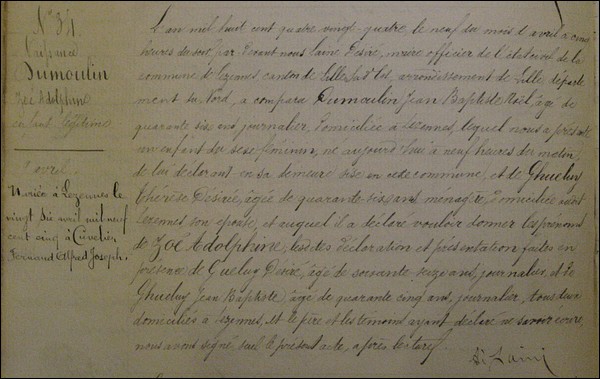 N° 34
Naissance
Dumoulin
Zoé Adolphine
enfant légitime
9 avril
Mariée à Lezennes le
vingt six avril mil neuf
cent cinq à Cuvelier
Fernand Alfred Joseph.
L'an mil huit cent quatre vingt-quatre, le neuf du mois d'avril à cinq
heures du soir, par devant nous Lainé Désiré, maire officier de l'état civil de la
commune de Lezennes canton de Lille Sud Est, arrondissement de Lille départe
ment du Nord, a comparu Dumoulin Jean Baptiste Noël, âgé de
quarante six ans, journalier, domicilié à Lezennes, lequel nous a présenté
un enfant du sexe féminin, né aujourd'hui à neuf heures du matin,
de lui déclarant en sa demeure sise en cette commune, et de Ghuelin
Thérèse Désirée, âgée de quarante six ans, ménagère, domiciliée audit
Lezennes son épouse, et auquel il a déclaré vouloir donner les prénoms
de Zoé Adolphine, lesdites déclaration et présentation faites en
présence de Gueluy Désiré, âgé de soixante seize ans, journalier, et de
Ghueluy Jean Baptiste âgé de quarante cinq ans, journalier, tous deux
domiciliés à Lezennes, et le père et les témoins ayant déclaré ne savoir écrire,
nous avons signé seul le présent acte, après lecture.
Dé Lainé